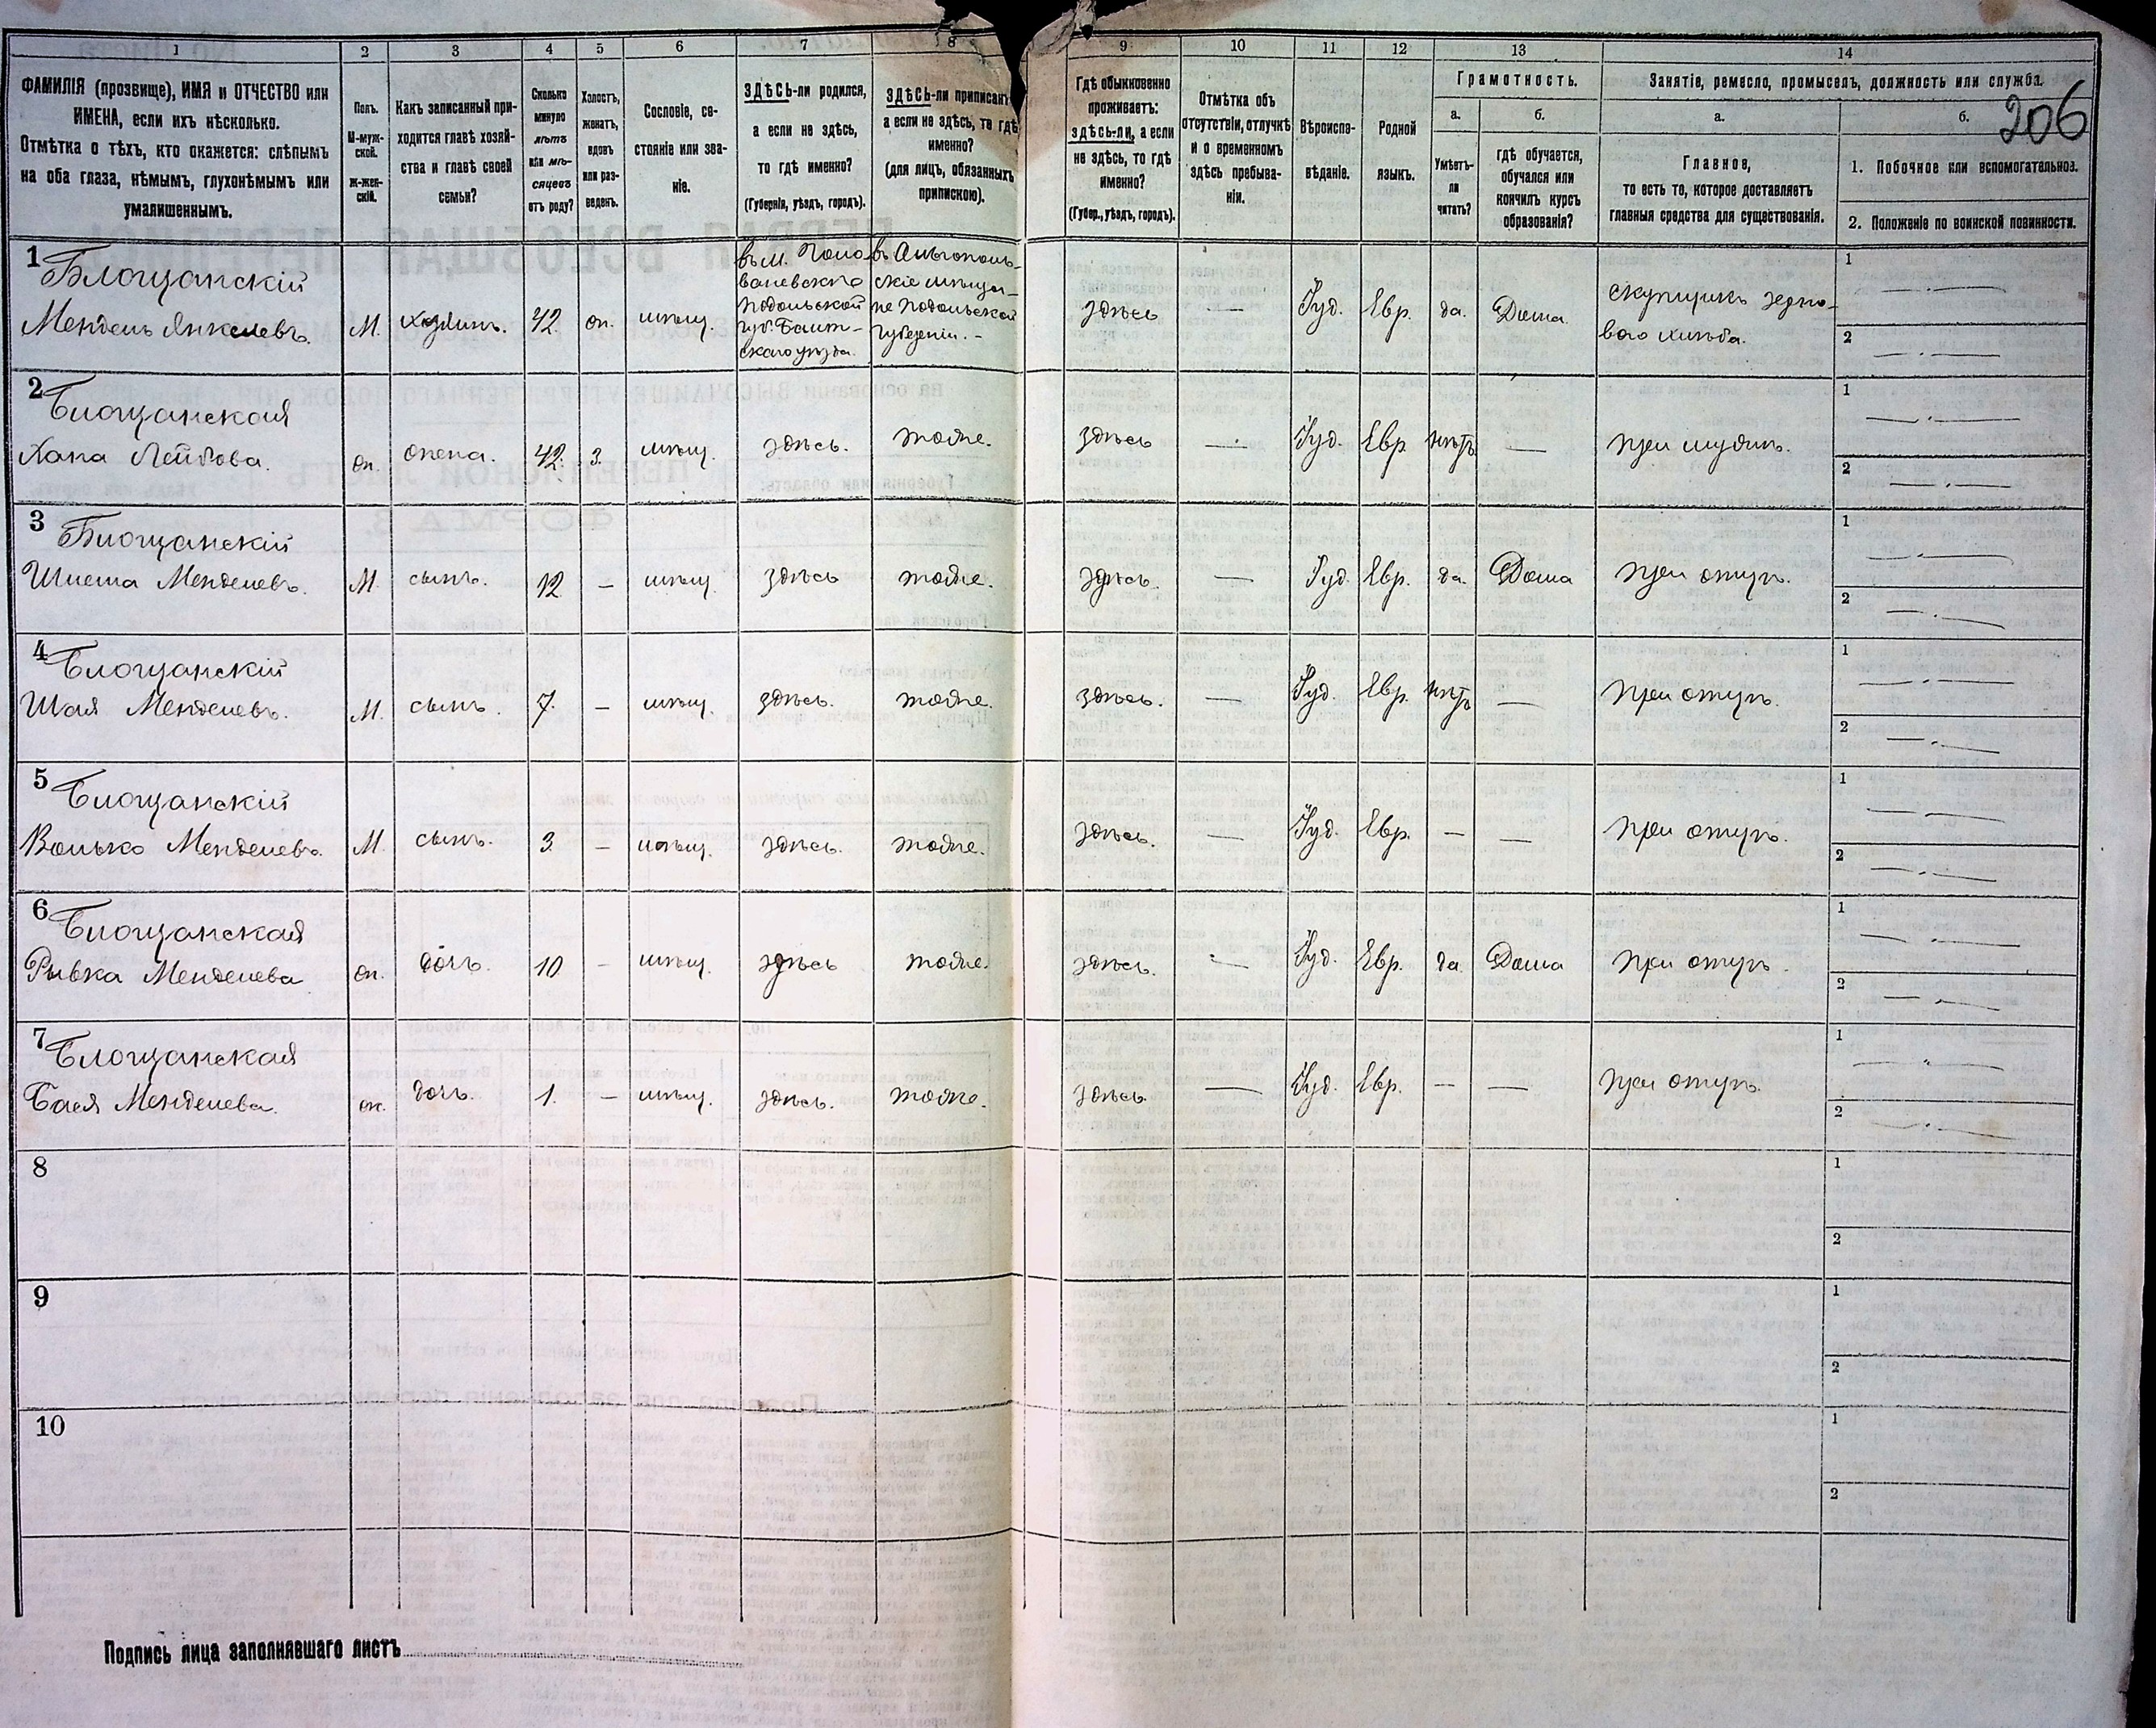 1 2 3 4 5 6 7 8 9 10 11 12 13 14
206
ФАМИЛІЯ (прозвище), ИМЯ и ОТЧЕСТВО или
ИМЕНА, если ихъ нѣсколько.
Отмѣтка о тѣхъ, кто окажется: слѣпымъ
на оба глаза, нѣмымъ, глухонѣмымъ или
умалишеннымъ.
Полъ.
М-муж-
ской.
Ж-жен-
скій.
Какъ записанный при-
ходится главѣ хозяй-
ства и главѣ своей
семьи?
Сколько
минуло
лѣтъ
или мѣ-
сяцевъ
отъ роду?
Холостъ,
женатъ,
вдовъ
или раз-
веденъ.
Сословіе, со-
стояніе или зва-
ніе.
ЗДѢСЬ-ли родился,
а если не здѣсь,
то гдѣ именно?
(Губернія, уѣздъ, городъ).
ЗДѢСЬ-ли приписанъ
а если не здѣсь, то гдѣ
именно?
(для лицъ, обязанныхъ
припискою).
Гдѣ обыкновенно
проживаетъ:
здѣсь-ли, а если
не здѣсь, то гдѣ
именно?
(Губер., уѣздъ, городъ).
Отмѣтка объ
отсутствіи, отлучкѣ
и о временномъ
здѣсь пребыва-
ніи.
Вѣроиспо-
вѣданіе.
Родной
языкъ.
Грамотность.
а.
Умѣетъ-
ли
читать?
б.
гдѣ обучается,
обучался или
кончилъ курсъ
образованія?
Занятіе, ремесло, промыселъ, должность или служба.
а.
Главное,
то есть то, которое доставляетъ
главныя средства для существованія.
б.
1. Побочное или вспомогательное.
2. Положеніе по воинской повинности.
1
Блощанскій
Мендель Янкелевъ. М. хозяинъ. 42 ж. мѣщ.
въ м. Голо-
ваневскѣ
Подольской
губ. Балт-
скаго уѣзда.
въ Ольгополь-
скіе мѣща-
не Подольской
губерніи. -
здѣсь — Іуд. Евр. да. Дома.
скупщикъ зерно-
вого хлѣба.
1 — . —
2 — . —
2
Блощанская
Хана Лейбова. ж. жена. 42. з. мѣщ. здѣсь. тоже. здѣсь — Іуд. Евр. нѣтъ — при мужѣ.
1 — . —
2 — . —
3
Блощанскій
Шлема Менделевъ. М. сынъ. 12 — мѣщ. здѣсь тоже. здѣсь. — Іуд. Евр. да. Дома при отцѣ.
1 — . —
2 — . —
4
Блощанскій
Шая Менделевъ. М. сынъ. 7. — мѣщ. здѣсь. тоже. здѣсь. — Іуд. Евр. нѣтъ — при отцѣ.
1 — . —
2 — . —
5
Блощанскій
Волько Менделевъ. М. сынъ. 3. — мѣщ. здѣсь. тоже. здѣсь. — Іуд. Евр. — — при отцѣ.
1 — . —
2 — . —
6
Блощанская
Рывка Менделева ж. дочь. 10 — мѣщ. здѣсь тоже. здѣсь. — Іуд. Евр. да Дома при отцѣ.
1 — . —
2 — . —
7
Блощанская
Бася Менделева. ж. дочь. 1. — мѣщ. здѣсь. тоже. здѣсь — Іуд. Евр. — — при отцѣ.
1 — . —
2 — . —
8
1
2
9
1
2
10
1
2
Подпись лица заполнявшаго листъ